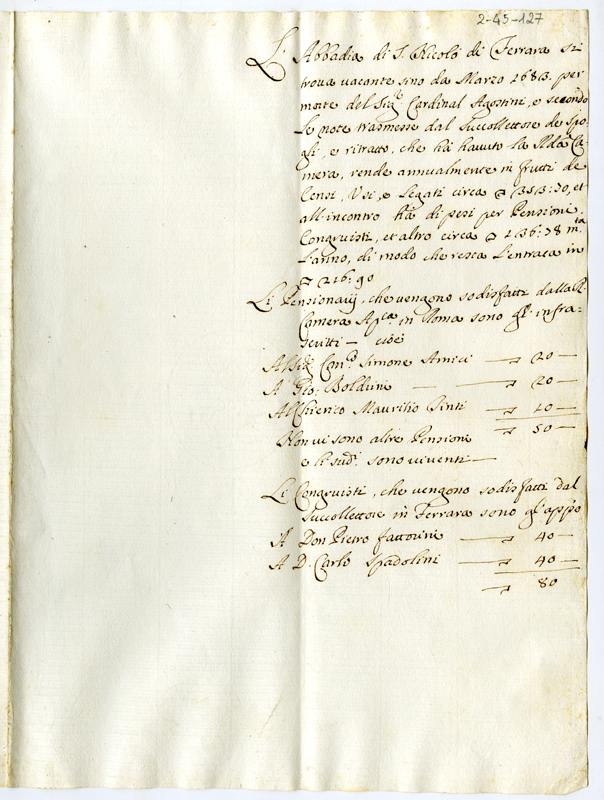 2-45-127
L'Abbadia di S. Nicolò di Ferrara si
trova vacante sino da Marzo 1683. per
morte del Sig.r Cardinal Agostini, e secondo
le note trasmesse dal Succollettore de Spo-
gli, e ritratto, che hà havuto la R.da Ca-
mera, rende annualmente in frutti de
Censi, Usi, e Legati circa 353:50, et
all'incontro hà di pesi per Pensioni,
Congruisti, et altro circa 136:78 m.ta
l'anno, di modo che resta l'entrata in
216:90
Li Pensionarij, che vengono sodisfatti dalla R.
Camera Ap.ca in Roma sono gl'infra-
scritti — cioè
Al Sig.r Con.co Simone Amici — 20 —
A Gio: Boldrini — — 20 —
Al Chierico Maurilio Pinti — 10 —
50 —
Non vi sono altre Pensioni
e li sud.i sono viventi —
Li Congruisti, che vengono sodisfatti dal
Succollettore in Ferrara sono gl'app.o
A Don Pietro Fattorini — 40 —
A D. Carlo Spadolini — 40 —
80